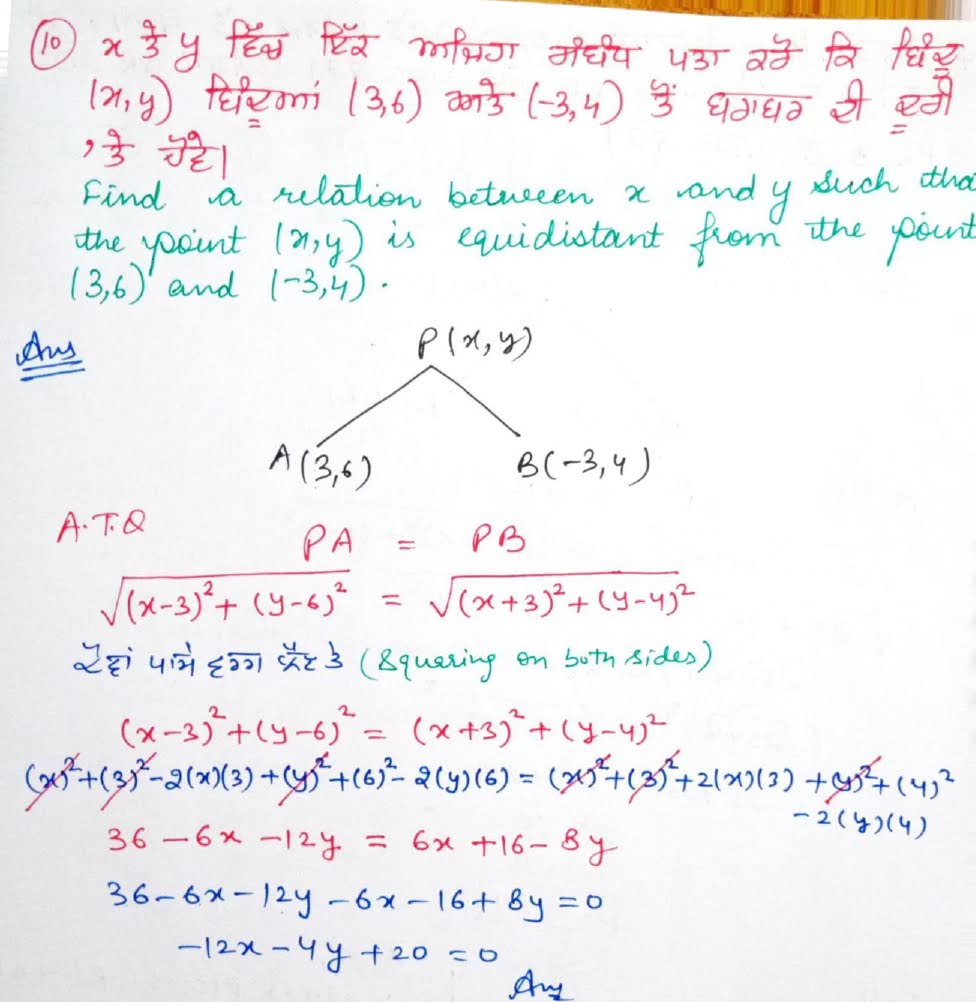 (10) x ਤੇ y ਵਿੱਚ ਇੱਕ ਅਜਿਹਾ ਸੰਬੰਧ ਪਤਾ ਕਰੋ ਕਿ ਬਿੰਦੂ
(x,y) ਬਿੰਦੂਆਂ (3,6) ਅਤੇ (-3,4) ਤੋਂ ਬਰਾਬਰ ਦੀ ਦੂਰੀ
'ਤੇ ਹੋਵੇ।
Find a relation between x and y such tha
the point (x,y) is equidistant from the point
(3,6) and (-3,4).
Ans
P(x,y)
A(3,6) B(-3,4)
A.T.Q
PA = PB
√(x-3)²+(y-6)² = √(x+3)²+(y-4)²
ਦੋਵਾਂ ਪਾਸੇ ਵਰਗ ਲੈਣ ਤੇ (Squaring on both sides)
(x-3)²+(y-6)² = (x+3)²+(y-4)²
(x)²+(3)²-2(x)(3)+(y)²+(6)²-2(y)(6) = (x)²+(3)²+2(x)(3)+(y)²+(4)²
-2(y)(4)
36-6x-12y = 6x+16-8y
36-6x-12y-6x-16+8y=0
-12x-4y+20=0
Ans